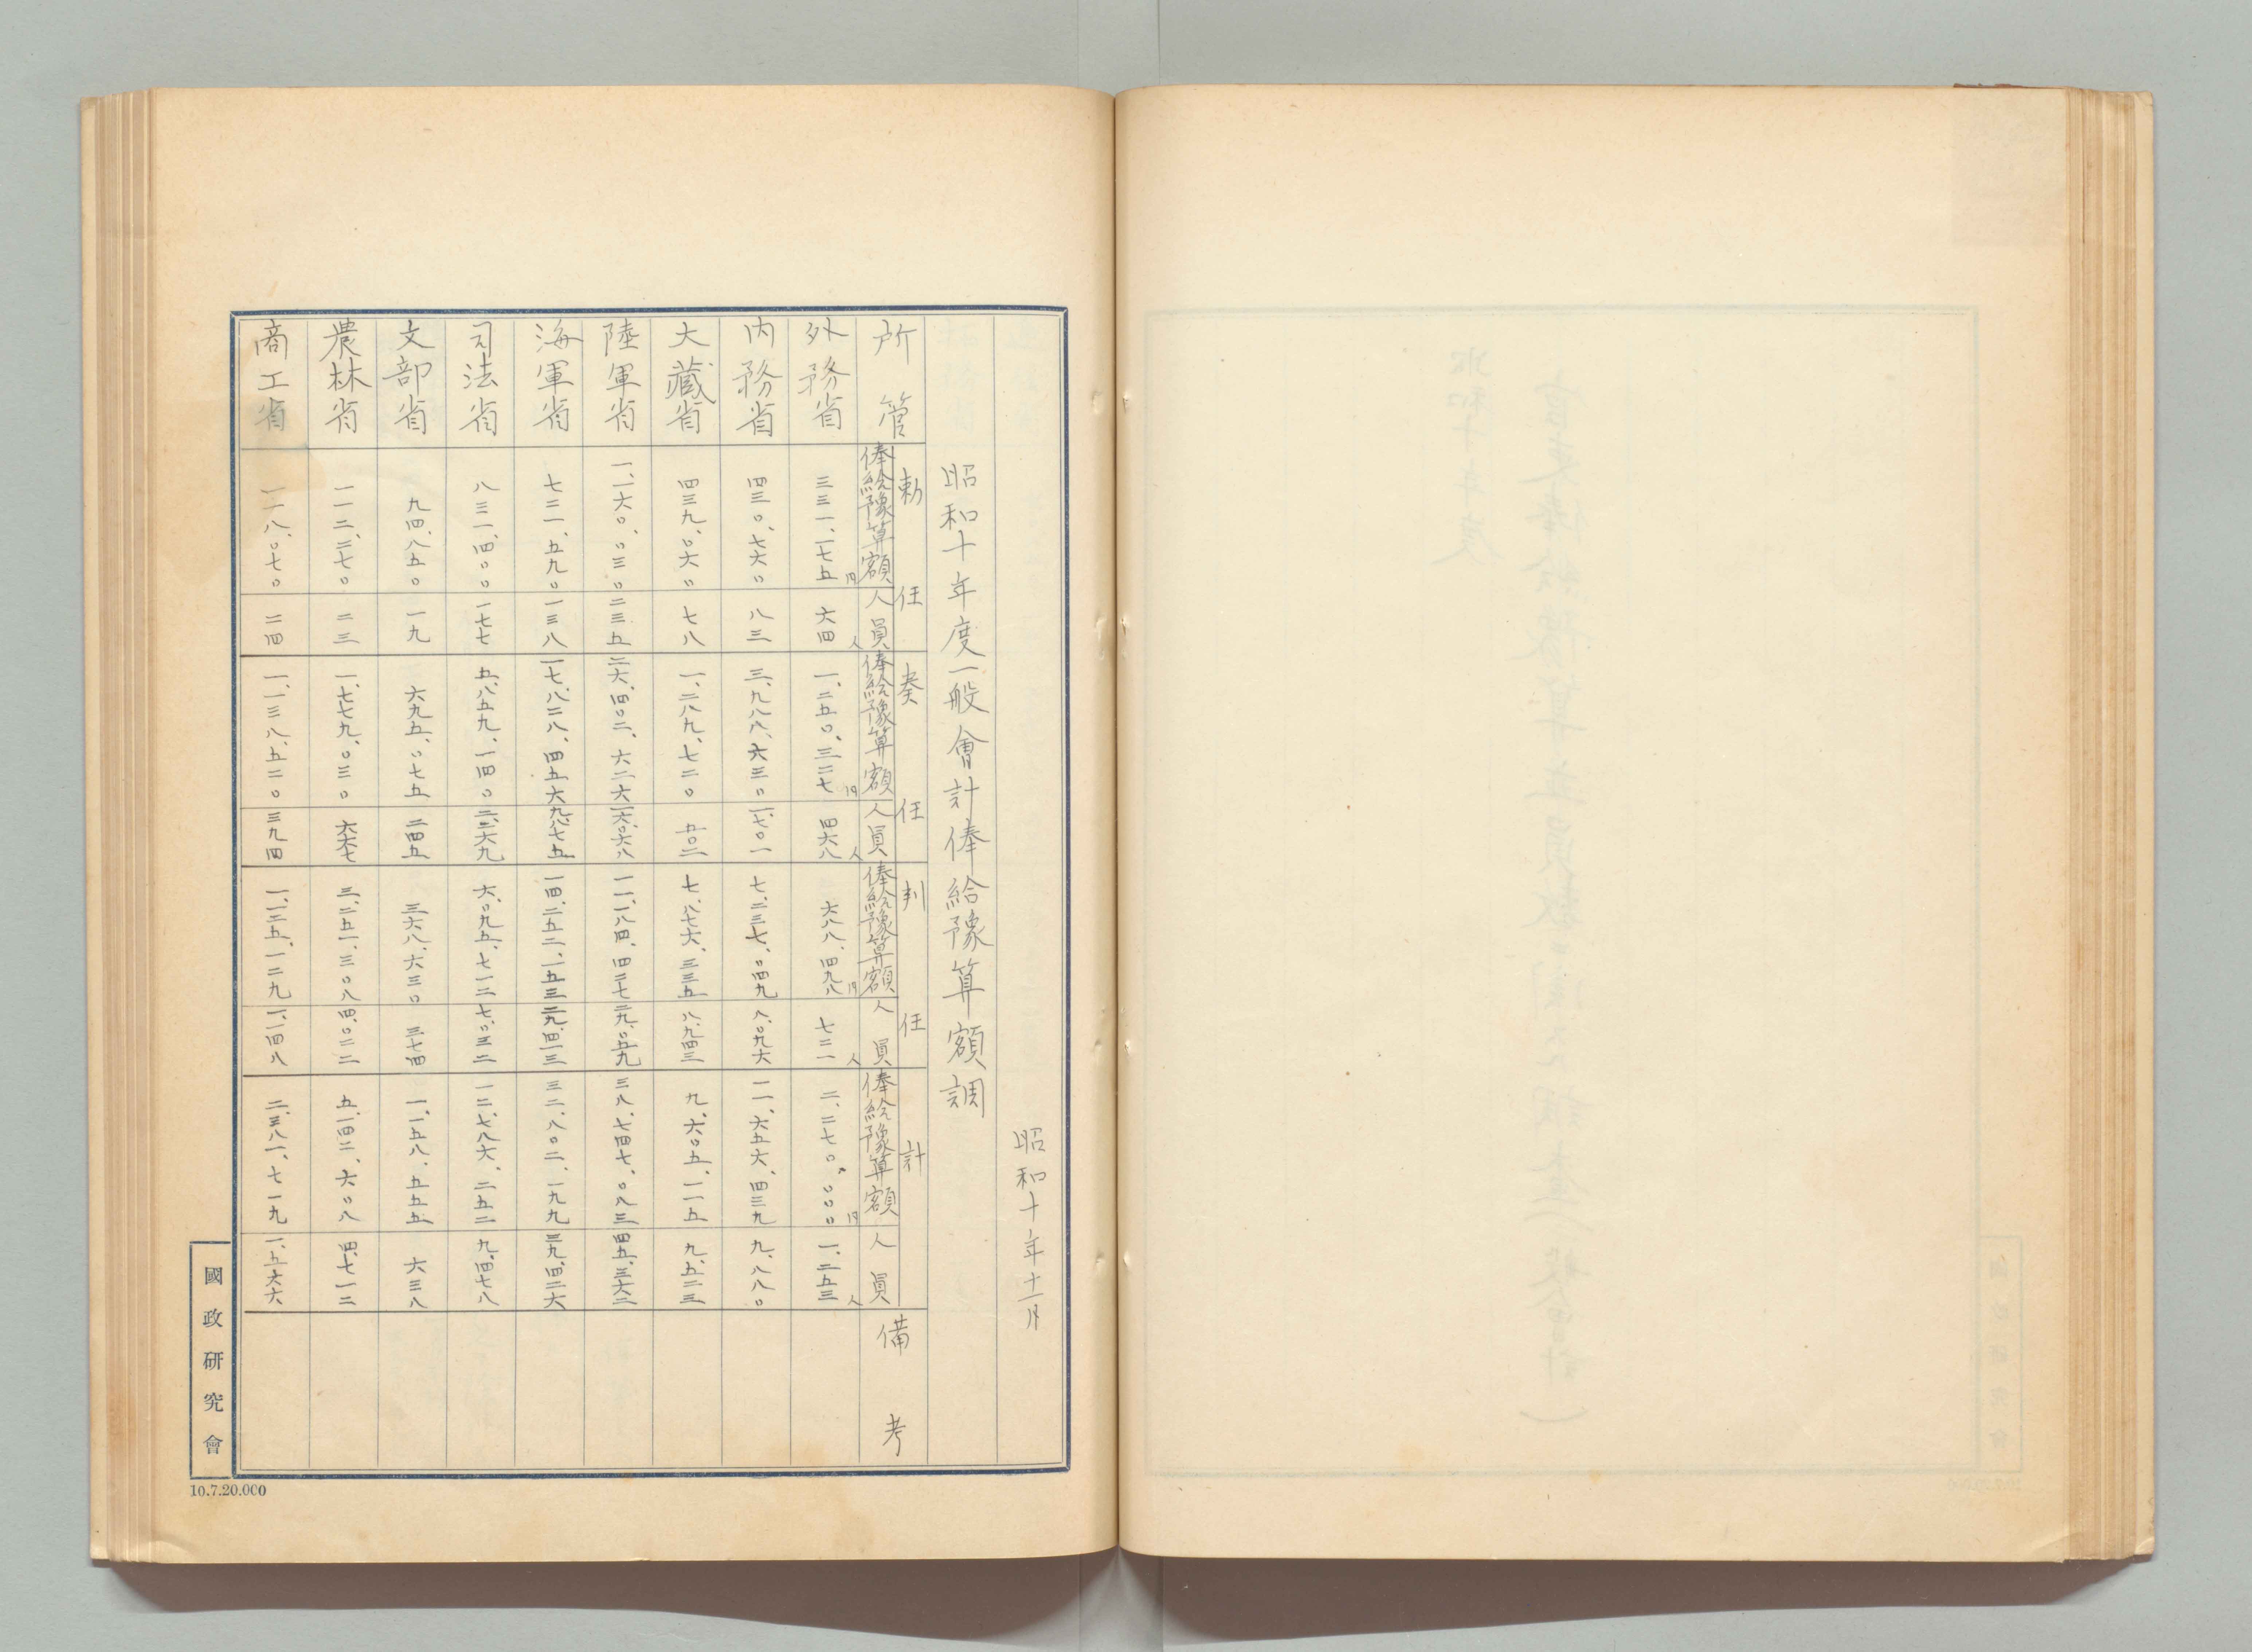 昭和十年十一月
昭和十年度一般會計俸給豫算額調
所管 勅任 俸給豫算額 人員 奏任 俸給豫算額 人員 判任 俸給豫算額 人員 計 俸給豫算額 人員 備考
外務省 三三一、一七五円 六四人 一、二五〇、三二七円 四六八人 六八八、四九八円 七二一人 二、二七〇、〇〇〇円 一、二五三人
内務省 四三〇、七六〇 八三 三、九八八、六三〇 一、七〇一 七、二三七、〇四九 八、〇九六 一一、六五六、四三九 九、八八〇
大藏省 四三九、〇六〇 七八 一、二八九、七二〇 五〇二 七、八七六、三三五 八、九四三 九、六〇五、一一五 九、五二三
陸軍省 一、一六〇、〇三〇 二三五 二六、四〇二、六二六 一六、〇六八 一一、一八四、四二七 二九、〇五九 三八、七四七、〇八三 四五、三六二
海軍省 七二一、五九〇 一三八 一七、八二八、四五六 九、八七五 一四、二五二、一五三 二九、四一三 三二、八〇二、一九九 三九、四二六
司法省 八三一、四〇〇 一七七 五、八五九、一四〇 二、二六九 六、〇九五、七一二 七、〇三二 一二、七八六、二五二 九、四七八
文部省 九四、八五〇 一九 六九五、〇七五 二四五 三六八、六三〇 三七四 一、一五八、五五五 六三八
農林省 一一二、二七〇 二三 一、七七九、〇三〇 六六七 三、二五一、三〇八 四、〇二二 五、一四二、六〇八 四、七一二
商工省 一一八、〇七〇 二四 一、一三八、五二〇 三九四 一、一二五、一二九 一、一四八 二、三八一、七一九 一、五六六
國政研究會
10.7.20.000